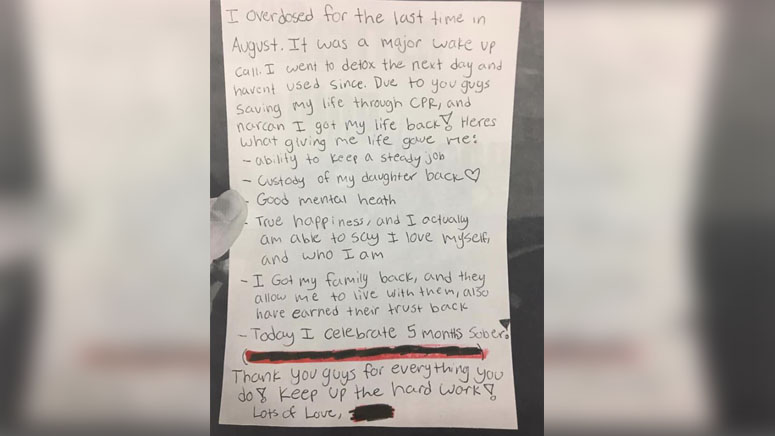 I overdosed for the last time in
August. It was a major wake up
call. I went to detox the next day and
havent used since. Due to you guys
saving my life through CPR, and
narcan I got my life back! Heres
what giving me life gave me:
- ability to keep a steady job
- Custody of my daughter back♡
- Good mental heath
- True happiness, and I actually
am able to say I love myself,
and who I am
- I Got my family back, and they
allow me to live with them, also
have earned their trust back
- Today I celebrate 5 months Sober!
Thank you guys for everything you
do! Keep up the hard work!
Lots of Love,